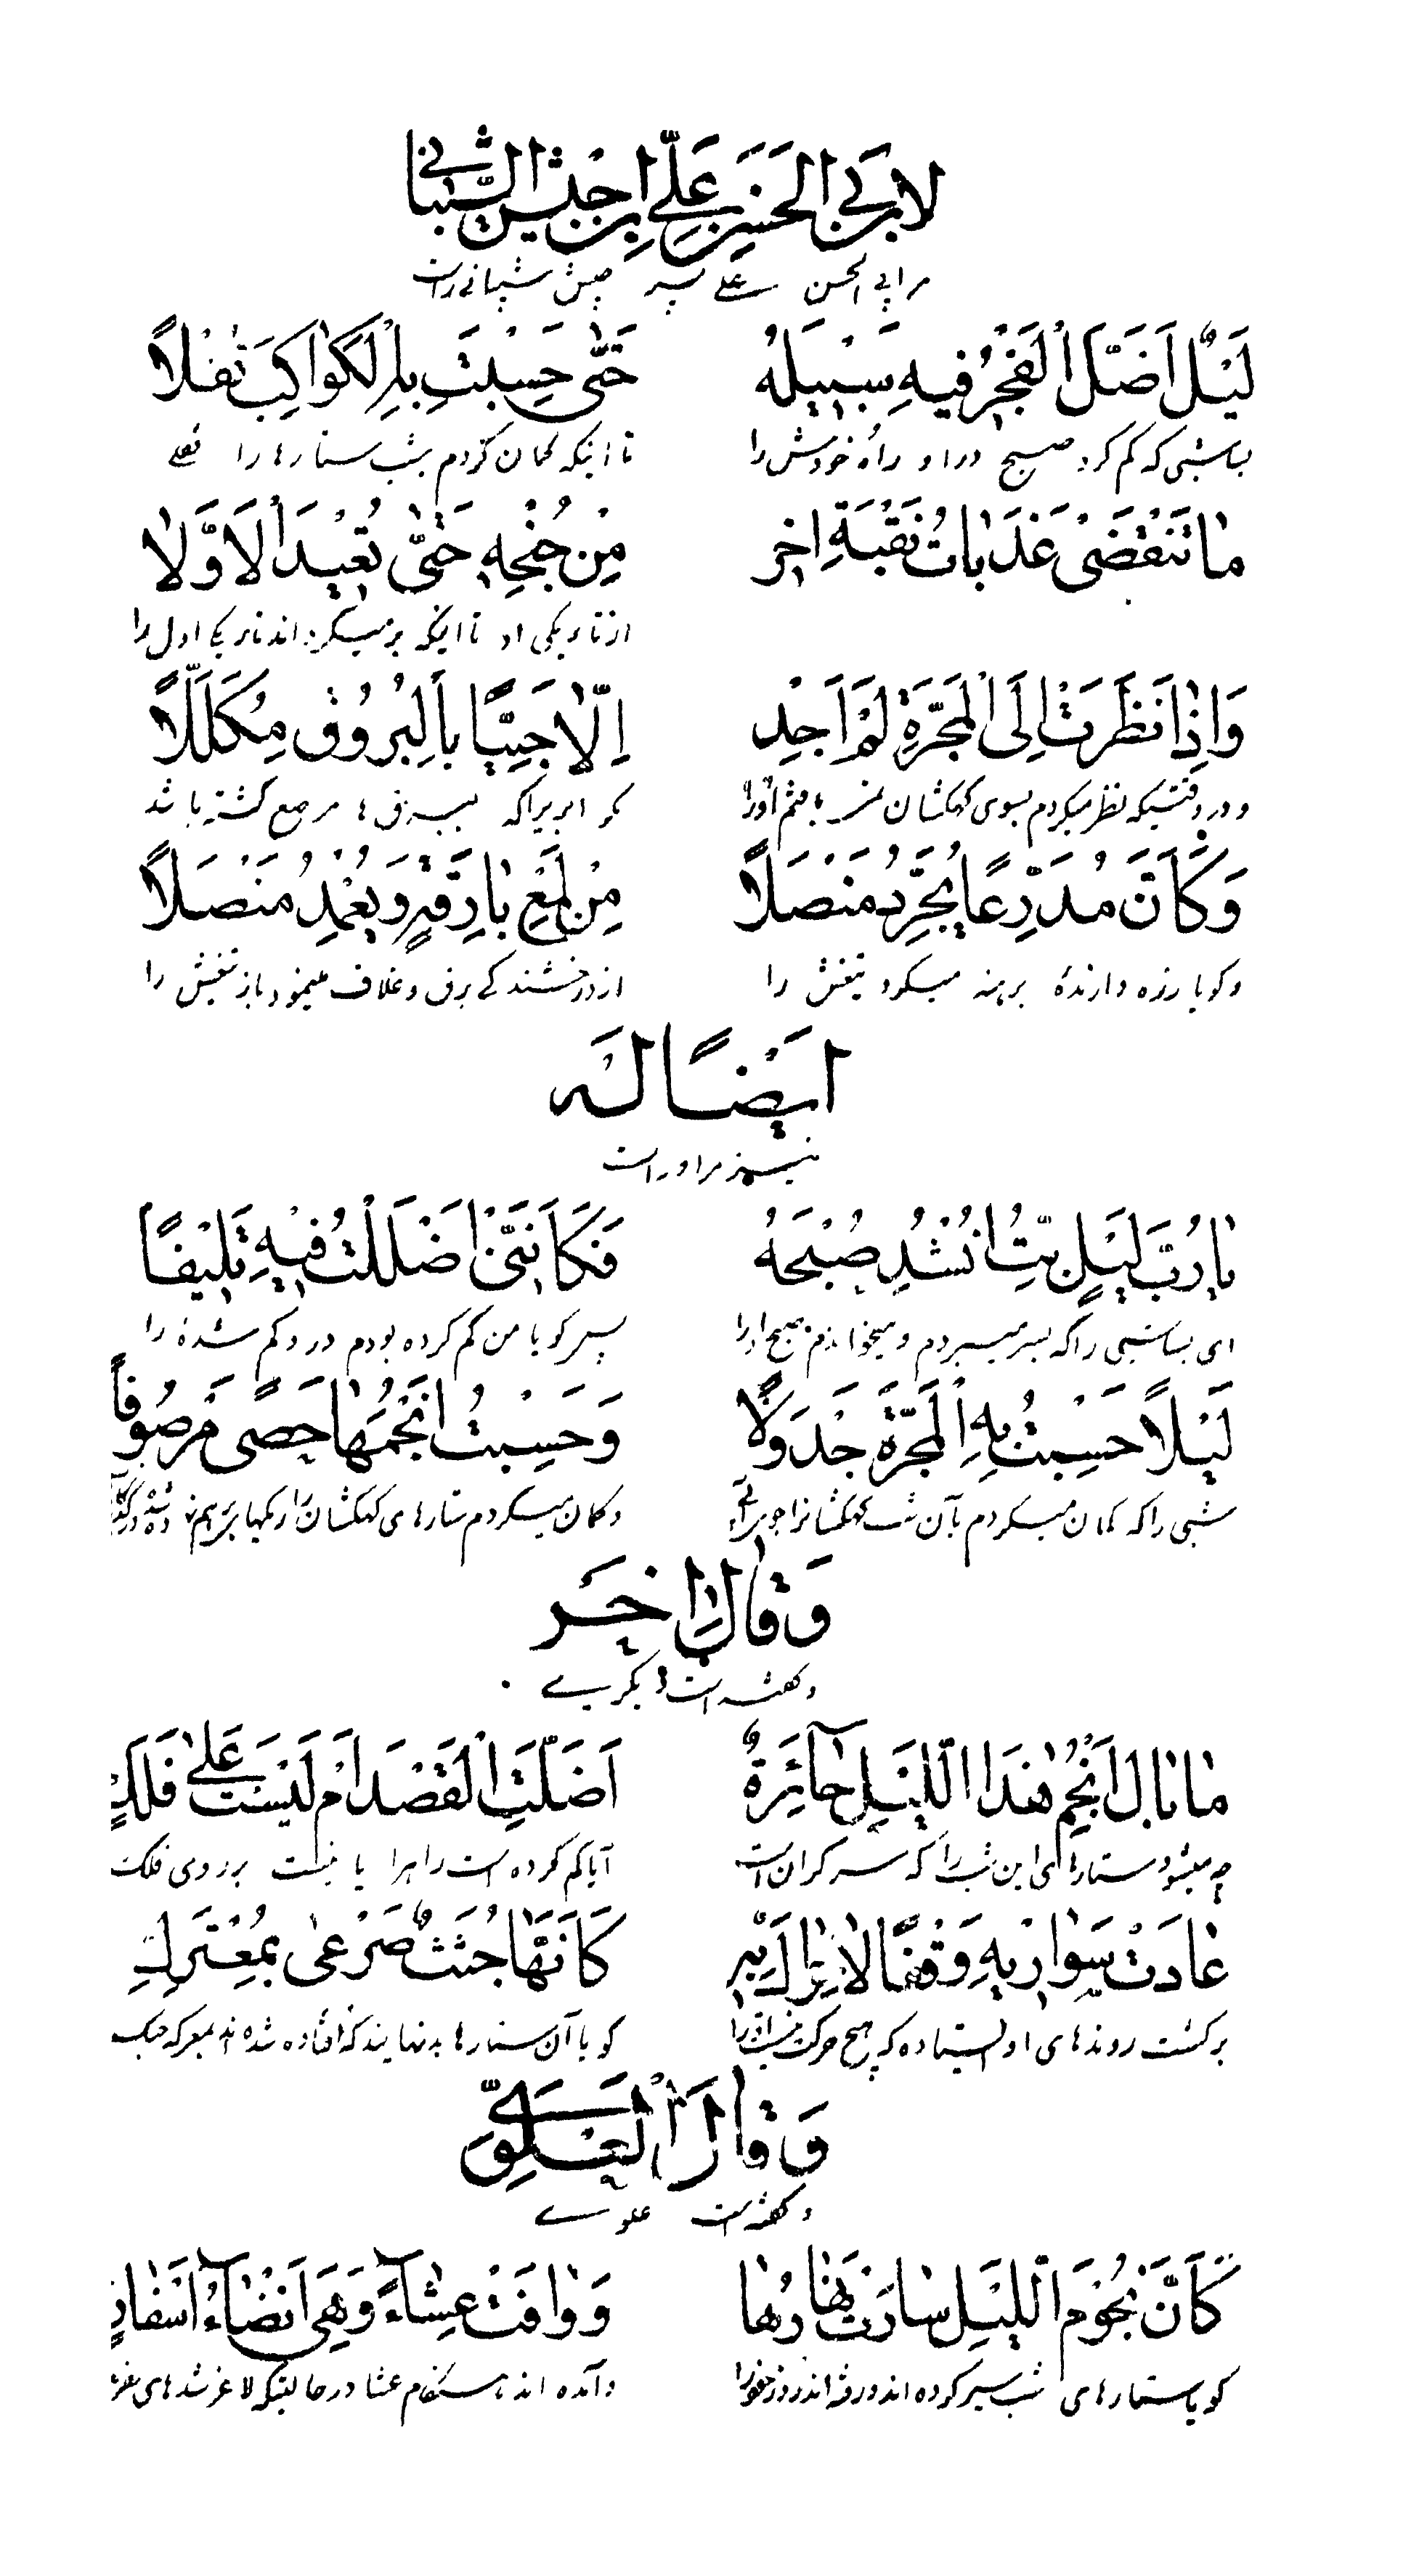 لِاَبِي الحَسَنِ عَلِيِّ ابْنِ حُبَيْشٍ الشَّيْبانِي
مر ابی الحسن علی پسر شیبانی راست
لَيْلٌ اَضَلَّ الْفَجْرُ فيهِ سَبيلَهُ حَتّى حَسِبْتَ بِاِلكَواكِبَ ثِقْلاً
بسا شبی که گم کرد صبح در او راه خودش را تا اینکه گمان کردم بشب ستارها را
مٰا تَنْقَضى عَذَبات نَقْبَةِ اخِرٍ مِنْ جُنْحِهِ حَتّى تُعيْدَ الاَوَّلا
از تاریکی او تا اینکه بر میگرداند تاریکی اول را
وَاِذٰا نَظَرْتُ اِلَى الْمَجَرَّةِ لَمْ اَجِدْ اِلّا حَبِيًّا بِالْبُرُوقِ مُكَلَّلاً
و در وقتیکه نظر میکردم بسوی کهکشان نمی یافتم او را مگر ابریرا که ببرق ها مرصع گشته باشد
وَكَاَنَّ مُدَّرِعًا يُجَرِّدُ مُنْصَلاً مِنْ لَمْعِ بٰارِقَةٍ وَيُغْمِدُ مُنْصَلاً
و گویا زره دارندۀ برهنه میکرد تیغش را از درخشندگی برق و غلاف مینمود باز تیغش را
اَيْضًا لَهُ
نیز مر او راست
يٰا رُبَّ لَيْلٍ بِتُّ اَنْشُدُ صُبْحَهُ فَكَاَنَّنى اَضْلَلْتُ فيهِ تَلِيفًا
ای بسا شبی را که بسر میبردم و میخواندم صبح او را پس گویا من گم کرده بودم در او گم شدۀ را
لَيْلاً حَسِبْتُ بِهِ الْمَجَرَّةَ جَدْوَلاً وَحَسِبْتُ اَنْجُمَهٰا حَصًى مَرْصُوفاً
شبی را که گمان میکردم بآن شب کهکشانرا جوی و گمان میکردم ستارهای کهکشان را ریگهای
وَقٰالَ اٰخَر
و گفته است دیگری
مٰا بٰالُ اَنْجُمِ هٰذَا اللَّيْلِ حٰآئِرَةٌ اَضَلَّتِ الْقَصْدَ اَمْ لَيْسَتْ عَلىٰ فَلَكٍ
چه میشود ستارهای این شب را که سرگران است آیا گم کرده است راهرا یا نیست بر روی فلک
عٰادَتْ سَوٰارِيهِ وَقْفًا لا يَزالُ بِهِ كَاَنَّهٰا جُثَثٌ صَرْعىٰ بِمُعْتَرَكٍ
برگشت روندهای او ایستاده که هیچ حرکت گویا آن ستارها بدنهایند که افتاده شده اند بمعرکه جنگ
وَقٰالَ الْعَلَوِيّ
و گفته است علوی
كَاَنَّ نُجُومَ اللَّيْلِ سٰارَتْ نَهٰارُهٰا وَوٰافَتْ عِشٰآءً وَهِيَ اَنْضٰآءُ اَسْفٰارٍ
گویا ستارهای شب سیر کرده اند و رفته اند روز خود را و آمده اند هنگام عشا در حالتیکه لاغر شدهای سفر